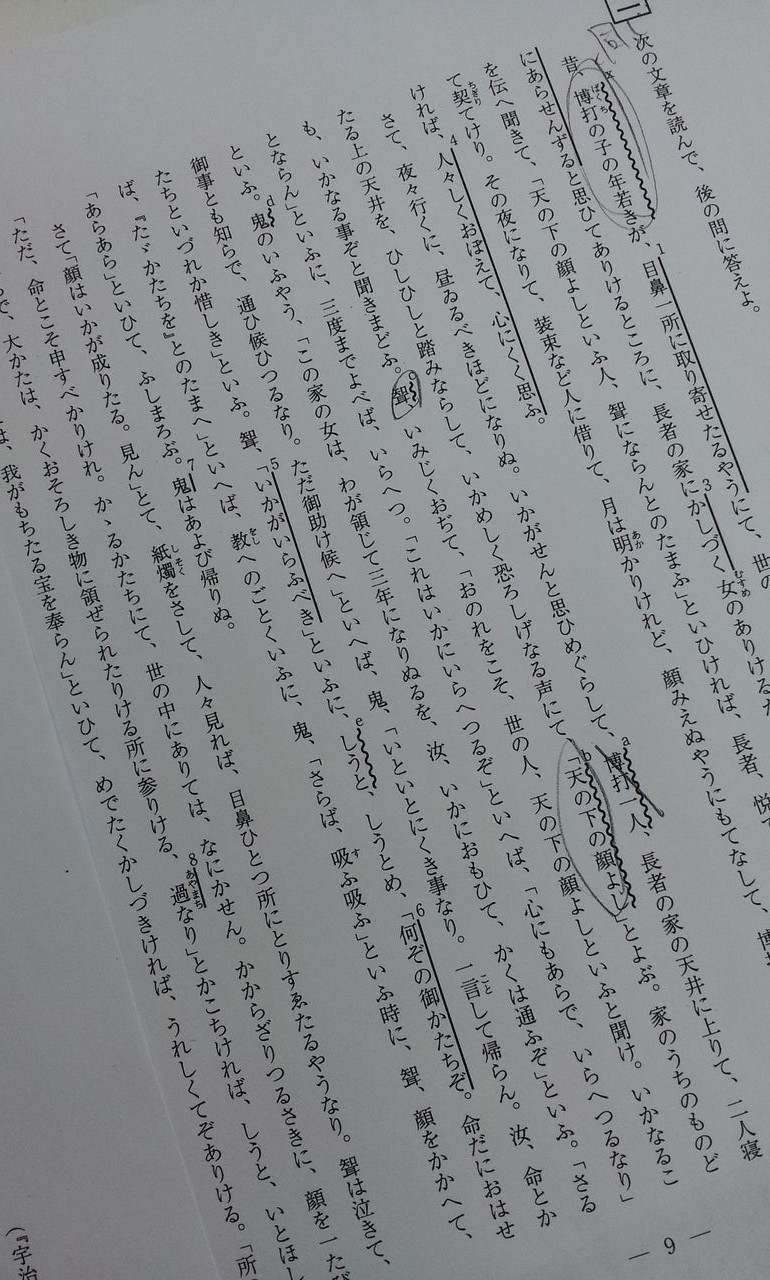 一
次の文章を読んで、後の問に答えよ。
昔、博打の子の年若きが、1目鼻一所に取り寄せたるやうにて、世の
にあらせんずると思ひてありけるところに、長者の家に3かしづく女のありける
を伝へ聞きて、「天の下の顔よしといふ人、聟にならんとのたまふ」といひければ、長者、悦
て契てけり。その夜になりて、装束など人に借りて、月は明かりけれど、顔みえぬやうにもてなして、博
ければ、4人々しくおぼえて、心にくく思ふ。
さて、夜々行くに、昼ゐるべきほどになりぬ。いかがせんと思ひめぐらして、a博打一人、長者の家の天井に上りて、二人寝
たる上の天井を、ひしひしと踏みならして、いかめしく恐ろしげなる声にて、b「天の下の顔よし」とよぶ。家のうちのものど
も、いかなる事ぞと聞きまどふ。c聟、いみじくおぢて、「おのれをこそ、世の人、天の下の顔よしといふと聞け。いかなるこ
とならん」といふに、三度までよべば、いらへつ。「これはいかにいらへつるぞ」といへば、「心にもあらで、いらへつるなり」
といふ。d鬼のいふやう、「この家の女は、わが領じて三年になりぬるを、汝、いかにおもひて、かくは通ふぞ」といふ。「さる
御事とも知らで、通ひ候ひつるなり。ただ御助け候へ」といへば、鬼、「いといとにくき事なり。一言して帰らん。汝、命とか
たちといづれか惜しき」といふ。聟、5「いかがいらふべき」といふに、eしうと、しうとめ、6「何ぞの御かたちぞ。命だにおはせ
ば、『たゞかたちを』とのたまへ」といへば、教へのごとくいふに、鬼、「さらば、吸ふ吸ふ」といふ時に、聟、顔をかかへて、
「あらあら」といひて、ふしまろぶ。7鬼はあよび帰りぬ。
さて「顔はいかが成りたる。見ん」とて、紙燭をさして、人々見れば、目鼻ひとつ所にとりすゑたるやうなり。聟は泣きて、
「ただ、命とこそ申すべかりけれ。かゝるかたちにて、世の中にありては、なにかせん。かからざりつるさきに、顔を一たび
で、大かたは、かくおそろしき物に領ぜられたりける所に参りける、8過なり」とかこちければ、しうと、いとほし
は、我がもちたる宝を奉らん」といひて、めでたくかしづきければ、うれしくてぞありける。「所
(『宇治
— 9 —